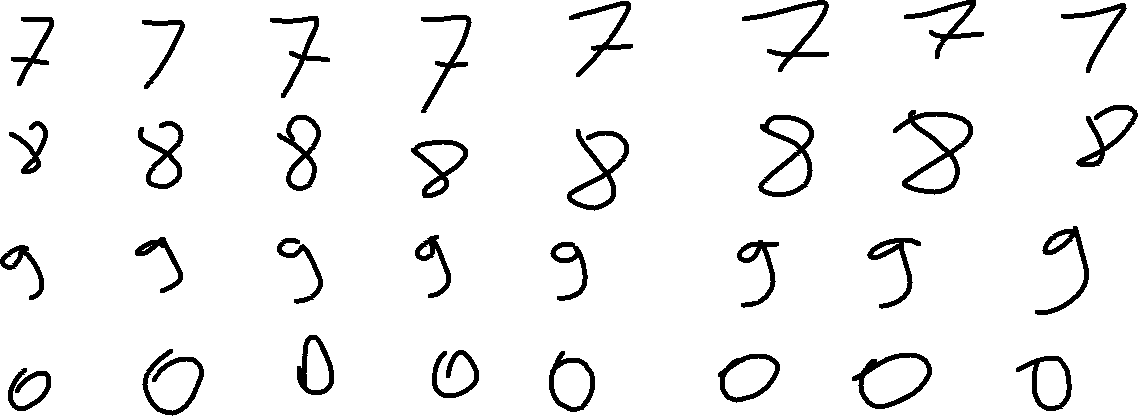 7 7 7 7 7 7 7 7
8 8 8 8 8 8 8 8
9 9 9 9 9 9 9 9
0 0 0 0 0 0 0 0